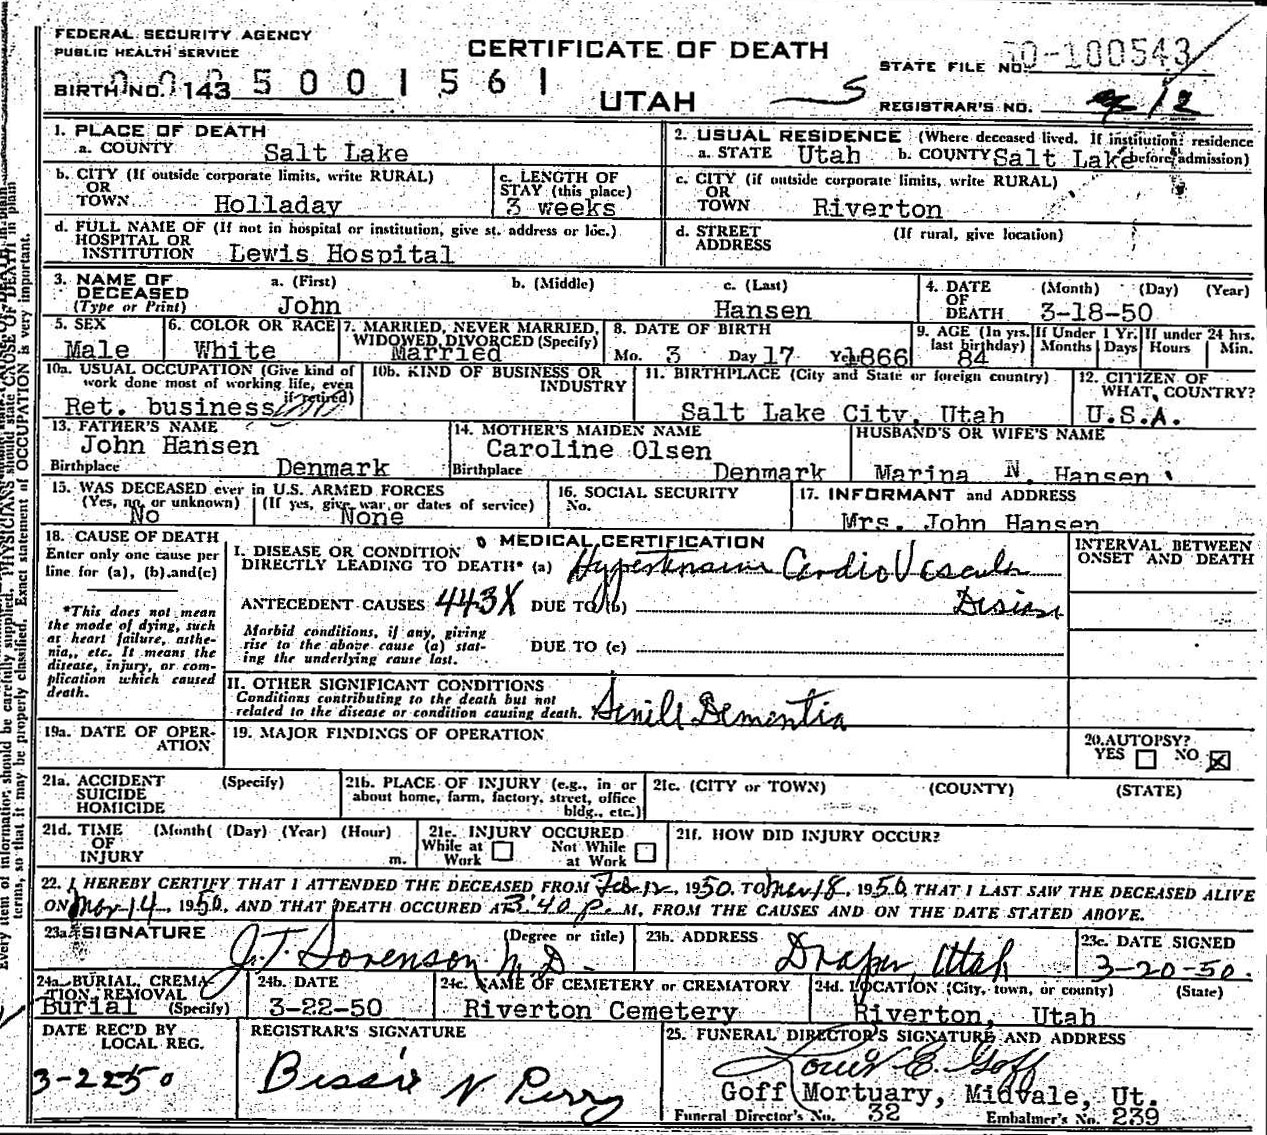 FEDERAL SECURITY AGENCY
PUBLIC HEALTH SERVICE
CERTIFICATE OF DEATH
STATE FILE NO. 50-100543
BIRTH NO. 143 5001561
UTAH
REGISTRAR'S NO. 12
1. PLACE OF DEATH
a. COUNTY Salt Lake
2. USUAL RESIDENCE (Where deceased lived. If institution: residence before admission)
a. STATE Utah b. COUNTY Salt Lake
b. CITY (If outside corporate limits, write RURAL)
OR
TOWN Holladay
c. LENGTH OF
STAY (this place)
3 weeks
c. CITY (if outside corporate limits, write RURAL)
OR
TOWN Riverton
d. FULL NAME OF (If not in hospital or institution, give st. address or loc.)
HOSPITAL OR
INSTITUTION Lewis Hospital
d. STREET (If rural, give location)
ADDRESS
3. NAME OF
DECEASED
(Type or Print)
a. (First) b. (Middle) c. (Last)
John Hansen
4. DATE (Month) (Day) (Year)
OF
DEATH 3-18-50
5. SEX
Male
6. COLOR OR RACE
White
7. MARRIED, NEVER MARRIED,
WIDOWED, DIVORCED (Specify)
Married
8. DATE OF BIRTH
Mo. 3 Day 17 Yr. 1866
9. AGE (In yrs.
last birthday)
84
If Under 1 Yr.
Months Days
If under 24 hrs.
Hours Min.
10a. USUAL OCCUPATION (Give kind of
work done most of working life, even
if retired)
Ret. business
10b. KIND OF BUSINESS OR
INDUSTRY
11. BIRTHPLACE (City and State or foreign country)
Salt Lake City, Utah
12. CITIZEN OF
WHAT COUNTRY?
U.S.A.
13. FATHER'S NAME
John Hansen
Birthplace Denmark
14. MOTHER'S MAIDEN NAME
Caroline Olsen
Birthplace Denmark
HUSBAND'S OR WIFE'S NAME
Marina N. Hansen
15. WAS DECEASED ever in U.S. ARMED FORCES
(Yes, no, or unknown) (If yes, give war or dates of service)
No None
16. SOCIAL SECURITY
No.
17. INFORMANT and ADDRESS
Mrs. John Hansen
18. CAUSE OF DEATH
Enter only one cause per
line for (a), (b) and (c)
*This does not mean
the mode of dying, such
as heart failure, asthe-
nia, etc. It means the
disease, injury, or com-
plication which caused
death.
MEDICAL CERTIFICATION
I. DISEASE OR CONDITION
DIRECTLY LEADING TO DEATH* (a) Hypertensive Cardio Vascular
Disease
ANTECEDENT CAUSES 443X DUE TO (b)
Morbid conditions, if any, giving
rise to the above cause (a) stat-
ing the underlying cause last.
DUE TO (c)
INTERVAL BETWEEN
ONSET AND DEATH
II. OTHER SIGNIFICANT CONDITIONS
Conditions contributing to the death but not
related to the disease or condition causing death. Senile Dementia
19a. DATE OF OPER-
ATION
19. MAJOR FINDINGS OF OPERATION
20. AUTOPSY?
YES NO
21a. ACCIDENT (Specify)
SUICIDE
HOMICIDE
21b. PLACE OF INJURY (e.g., in or
about home, farm, factory, street, office
bldg., etc.)
21c. (CITY or TOWN) (COUNTY) (STATE)
21d. TIME (Month) (Day) (Year) (Hour)
OF
INJURY m.
21e. INJURY OCCURED
While at Not While
Work at Work
21f. HOW DID INJURY OCCUR?
22. I HEREBY CERTIFY THAT I ATTENDED THE DECEASED FROM Feb 12, 1950, TO Mar 18, 1950, THAT I LAST SAW THE DECEASED ALIVE
ON Mar 14, 1950, AND THAT DEATH OCCURED AT 3:40 p. M, FROM THE CAUSES AND ON THE DATE STATED ABOVE.
23a. SIGNATURE (Degree or title)
J. T. Sorenson M.D.
23b. ADDRESS
Draper, Utah
23c. DATE SIGNED
3-20-50.
24a. BURIAL, CREMA-
TION, REMOVAL
Burial (Specify)
24b. DATE
3-22-50
24c. NAME OF CEMETERY or CREMATORY
Riverton Cemetery
24d. LOCATION (City, town, or county) (State)
Riverton, Utah
DATE REC'D BY
LOCAL REG.
3-22-50
REGISTRAR'S SIGNATURE
Bessie N Perry
25. FUNERAL DIRECTOR'S SIGNATURE AND ADDRESS
Louis E. Goff
Goff Mortuary, Midvale, Ut.
Funeral Director's No. 32 Embalmer's No. 239
Every item of information should be carefully supplied. PHYSICIANS should state CAUSE OF DEATH in plain
terms, so that it may be properly classified. Exact statement of OCCUPATION is very important.